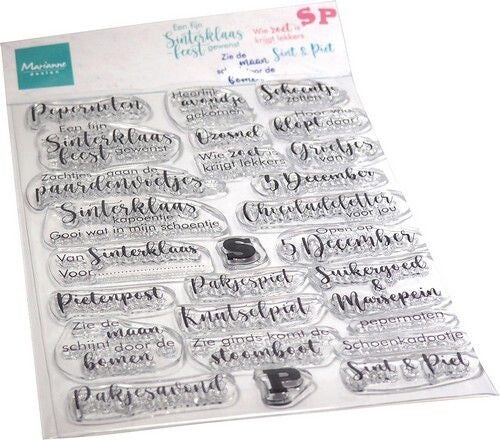 Marianne
design
Een fijn
Sinterklaas
feest gewenst
Wie zoet is
krijgt lekkers
SP
Zie de
maan
schijnt door de
bomen
Sint & Piet
Pepernoten
Heerlijk
avondje
is
gekomen
Schoentje
zetten
Een fijn
Sinterklaas
feest gewenst
Ozosnel
Hoor wie
klopt daar
Wie zoet is
krijgt lekkers
Groetjes
van
Zachtjes gaan de
paardenvoetjes
5 December
Sinterklaas
kapoentje
Gooi wat in mijn schoentje
Chocoladeletter
voor jou
Van Sinterklaas
Voor
S
Open op
5 December
Pakjespiet
Suikergoed
&
Marsepein
Pietenpost
Knutselpiet
pepernoten
Zie de
maan
schijnt door de
bomen
Zie ginds komt de
stoomboot
Schoenkadootje
Pakjesavond
P
Sint & Piet